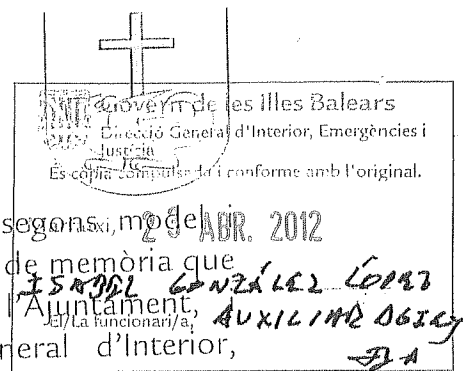 Govern de les Illes Balears
Direcció General d'Interior, Emergències i
Justícia
Es còpia compulsada i conforme amb l'original.
segons model i
ABR. 2012
de memòria que
ISABEL GONZÁLEZ LÓPEZ
l'Ajuntament,
El/La funcionari/a, AUXILIAR
neral d'Interior,